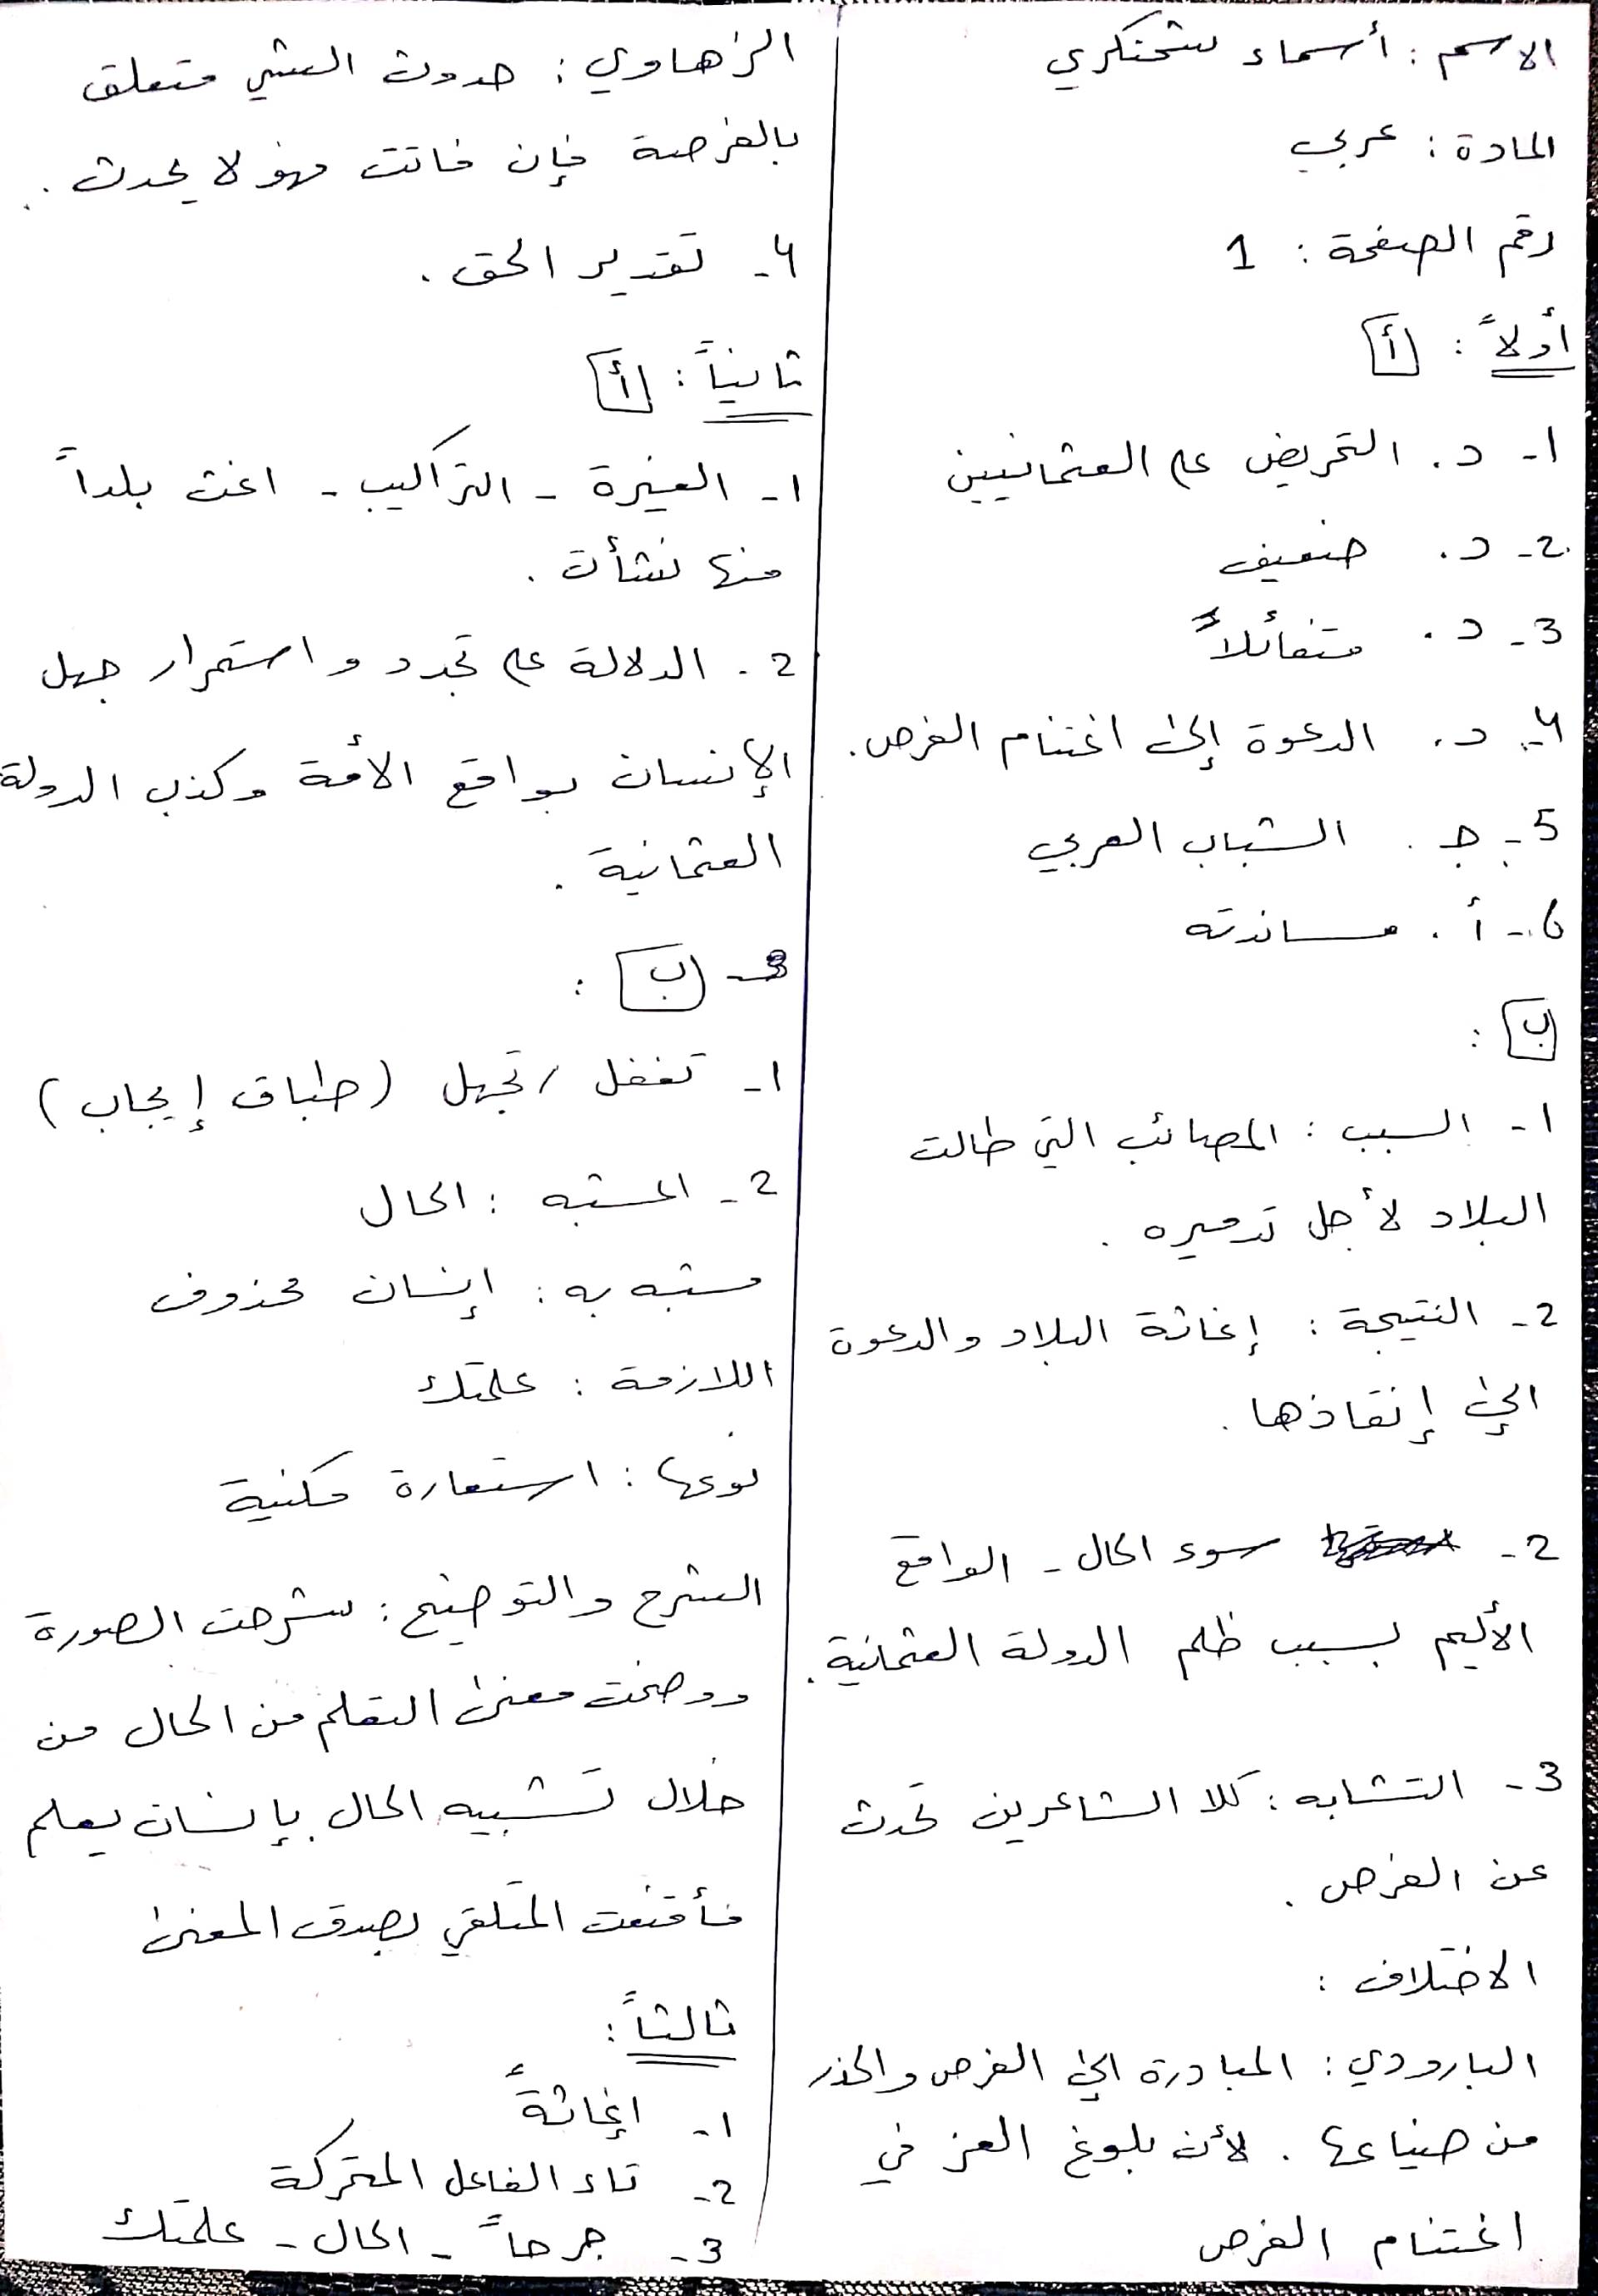 الاسم : أسماء شحتكري
المادة : عربي
رقم الصفحة : 1
أولاً : أ
1- د. التحريض على العثمانيين
2- د. ضعيف
3- د. متفائلاً
4- د. الدعوة إلى اغتنام الفرص.
5- جـ. الشباب العربي
6- أ. مساندته
ب :
1- السبب : المصائب التي طالت
البلاد لأجل تدميره .
2- النتيجة : إغاثة البلاد والدعوة
إلى إنقاذها .
2- سوء الحال - الواقع
الأليم بسبب ظلم الدولة العثمانية.
3- التشابه : كلا الشاعرين تحدث
عن الفرص .
الاختلاف :
البارودي : المبادرة إلى الفرص والحذر
من ضياعها . لأن بلوغ العز في
اغتنام الفرص
الزهاوي : حدوث الشي متعلق
بالفرصة فإن فاتت فهو لا يحدث .
4- تقدير الحق .
ثانياً : أ
1- الغيرة - التراكيب - اغث بلداً
منها نشأت .
2. الدلالة على تجدد واستمرار جهل
الإنسان بواقع الأمة وكذب الدولة
العثمانية .
3- ب :
1- تغفل / تجهل (طباق إيجاب)
2- المشبه : الحال
مشبه به : إنسان محذوف
اللازمة : علمتك
نوعها : استعارة مكنية
الشرح والتوضيح : شرحت الصورة
ووضحت معنى التعلم من الحال من
خلال تشبيه الحال بإنسان يعلم
فأقنعت المتلقي بصدق المعنى
ثالثاً :
1- إغاثةً
2- تاء الفاعل المتحركة
3- جرحاً - الحال - علمتك